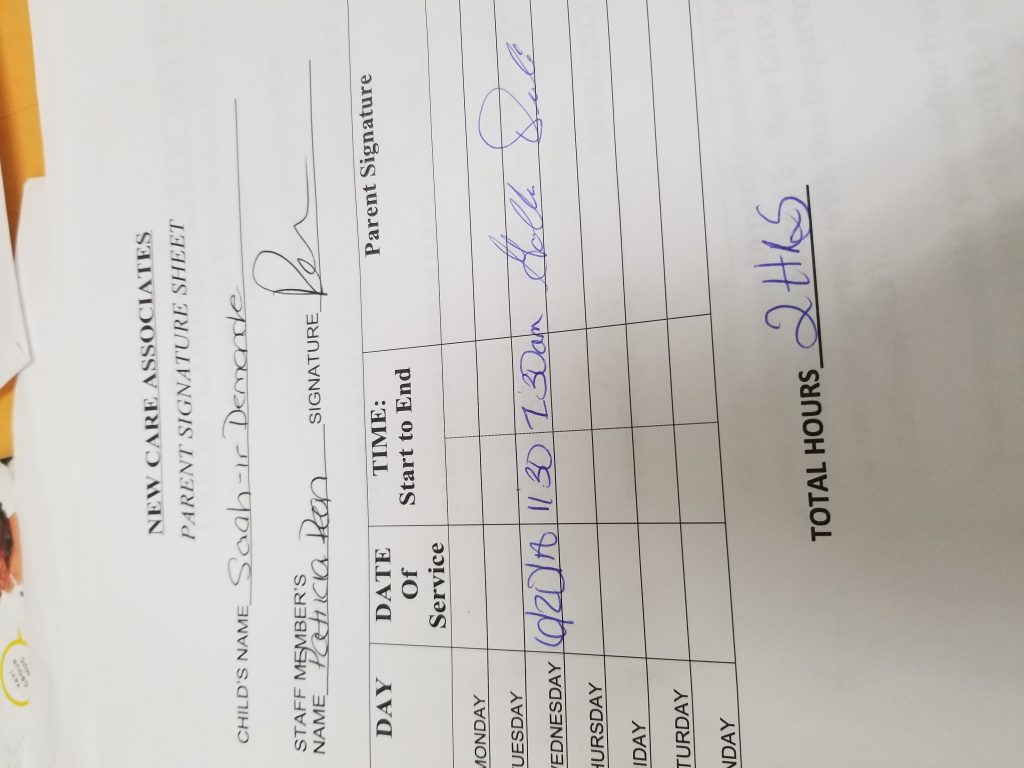 NEW CARE ASSOCIATES
PARENT SIGNATURE SHEET
CHILD'S NAME Saah-ir Demande
STAFF MEMBER'S
NAME Patricia Pean SIGNATURE
DAY DATE Of Service TIME: Start to End Parent Signature
MONDAY
UESDAY
EDNESDAY 6/20/18 11 30 1:30am
HURSDAY
IDAY
TURDAY
NDAY
TOTAL HOURS 2 HRS